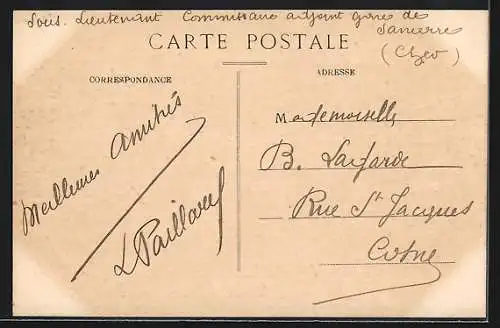 Sous. Lieutenant Commissaire adjoint gare de
Sancerre
(Cher)
CARTE POSTALE
CORRESPONDANCE
Meilleures amitiés
L Paillard
ADRESSE
Mademoiselle
B. Lafarde
Rue St Jacques
Cosne